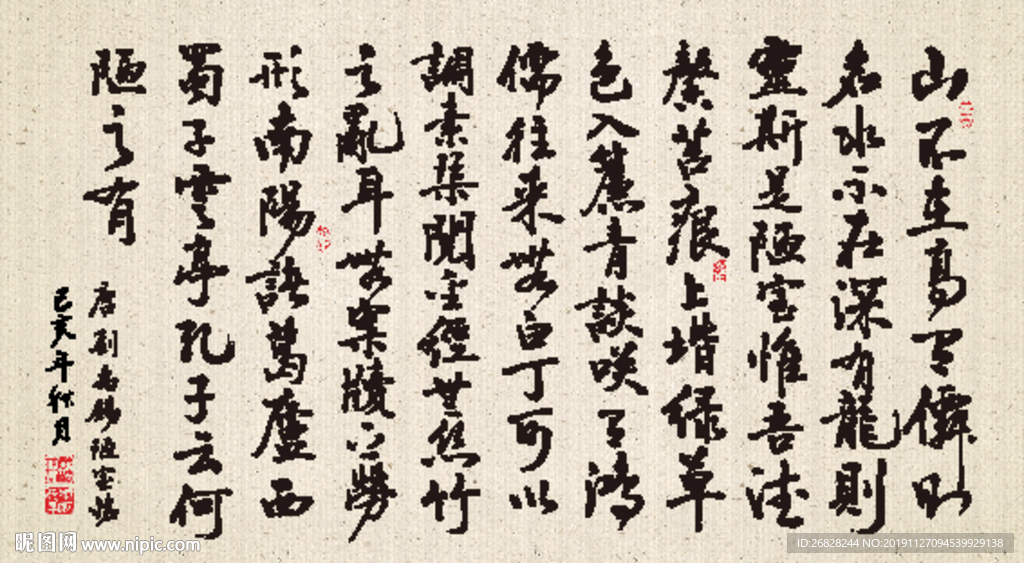 山不在高有僊則
名水不在深有龍則
靈斯是陋室惟吾德
馨苔痕上堦绿草
色入簾青談咲有鴻
儒往来無白丁可以
調素琴閲金經無丝竹
之亂耳無案牘之勞
形南陽諸葛廬西
蜀子雲亭孔子云何
陋之有
唐刘禹锡陋室铭
己亥年秋月
昵图网 www.nipic.com
ID:26828244 NO:20191127094539929138